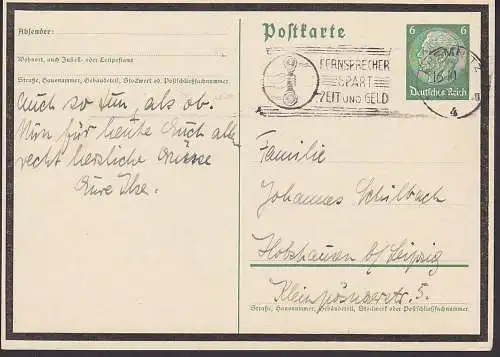 Absender:
Wohnort, auch Zustell- oder Leitpostamt
Straße, Hausnummer, Gebäudeteil, Stockwerk od. Postschließfachnummer
Euch so tun, als ob.
Nun für heute Euch allen
recht herzliche Grüsse
Eure Ilse.
Postkarte
FERNSPRECHER
SPART
ZEIT UND GELD
4
6 6
Deutsches Reich
Familie
Johannes Schilbach
Holzhausen b/Leipzig
Kleinpösnaerstr. 5.
Straße, Hausnummer, Gebäudeteil, Stockwerk oder Postschließfachnummer